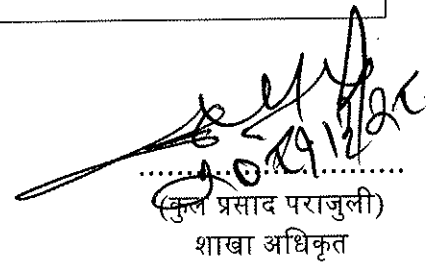 (कुल प्रसाद पराजुली)
शाखा अधिकृत